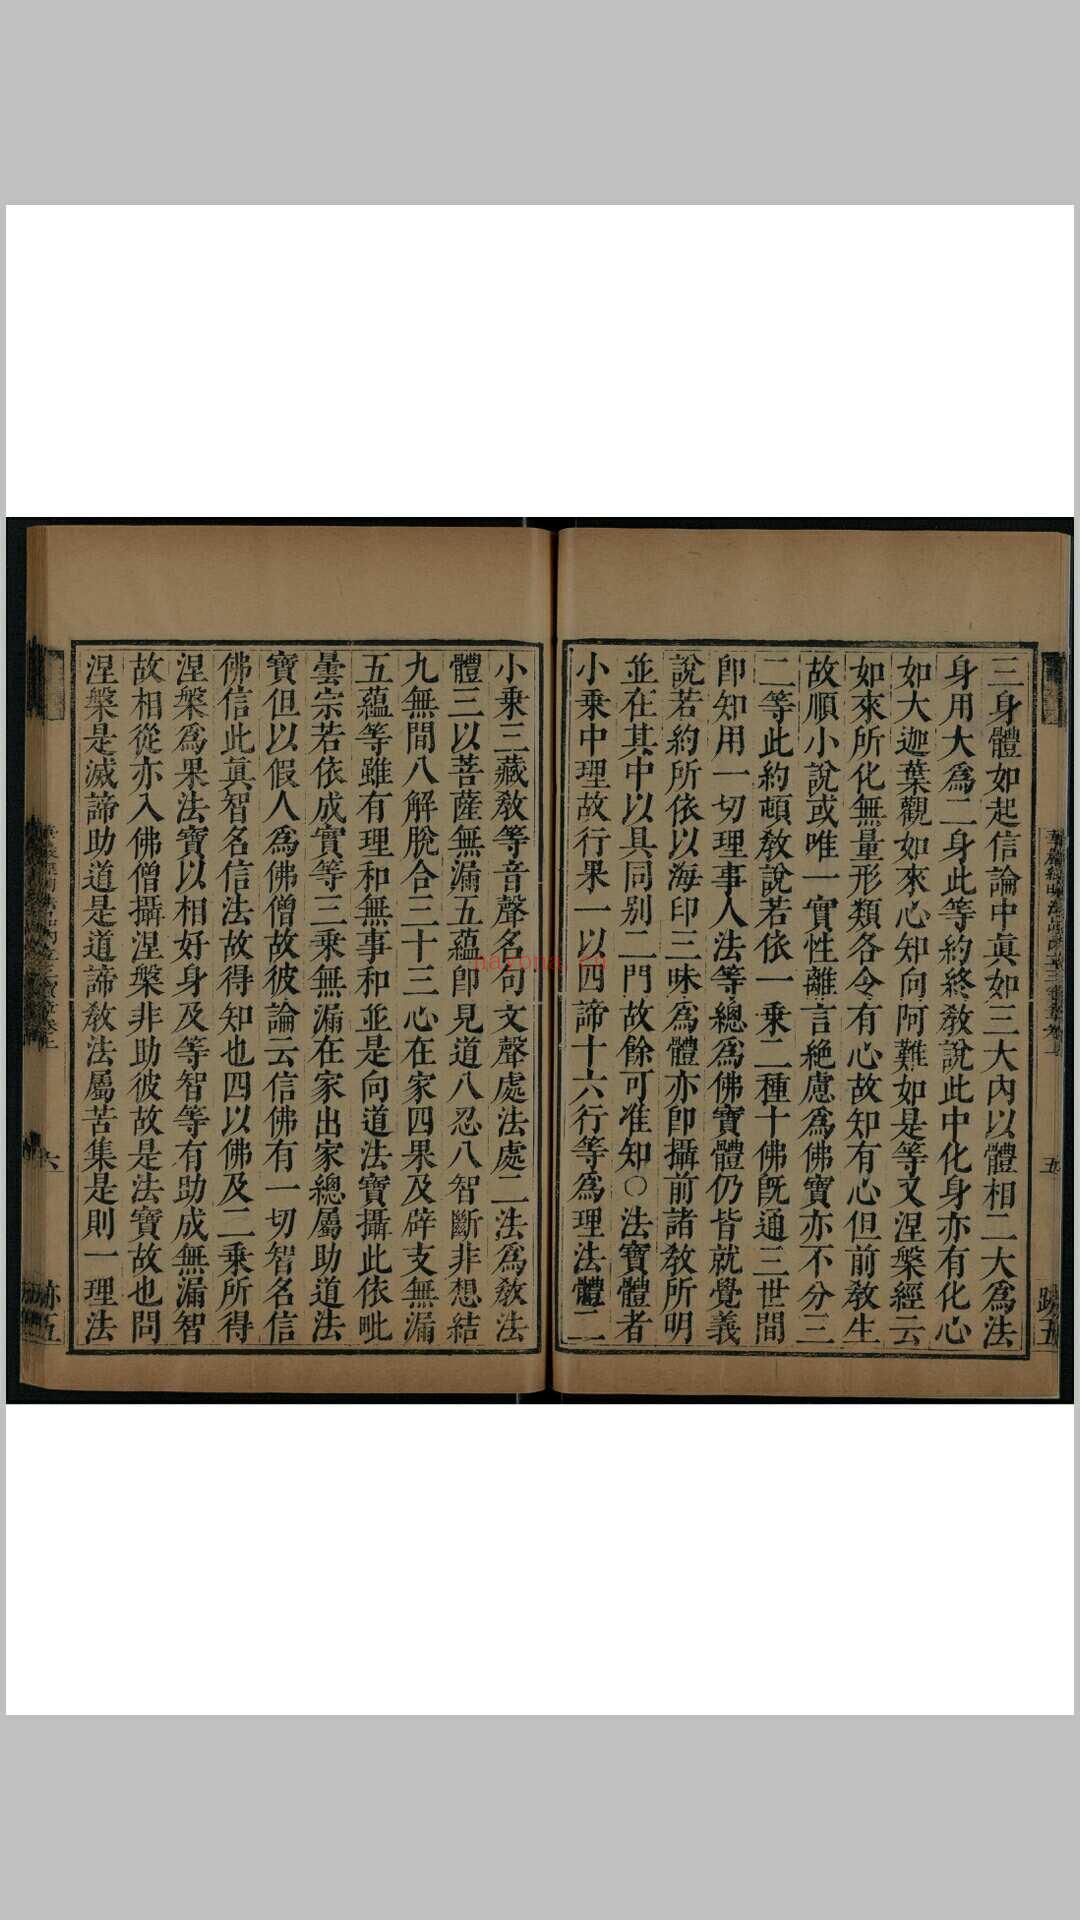 三身體如起信論中眞如三大內以體相二大爲法
身用大爲二身此等約終敎說此中化身亦有化心
如大迦葉觀如來心知向阿難如是等又涅槃經云
如來所化無量形類各令有心故知有心但前敎生
故順小說或唯一實性離言絶慮爲佛寶亦不分三
二等此約頓敎說若依一乗二種十佛旣通三世間
卽知用一切理事人法等總爲佛寶體仍皆就覺義
說若約所依以海印三昧爲體亦卽攝前諸敎所明
並在其中以具同别二門故餘可准知○法寶體者
小乗中理故行果一以四諦十六行等爲理法體二
小乗三藏敎等音聲名句文聲處法處二法爲敎法
體三以菩薩無漏五蘊卽見道八忍八智斷非想結
九無間八解脫合三十三心在家四果及辟支無漏
五蘊等雖有理和無事和並是向道法寶攝此依毗
曇宗若依成實等三乗無漏在家出家總屬助道法
寶但以假人爲佛僧故彼論云信佛有一切智名信
佛信此眞智名信法故得知也四以佛及二乗所得
涅槃爲果法寶以相好身及等智等有助成無漏智
故相從亦入佛僧攝涅槃非助彼故是法寶故也問
涅槃是滅諦助道是道諦敎法屬苦集是則一理法
五
六
跡五
nayona.cn